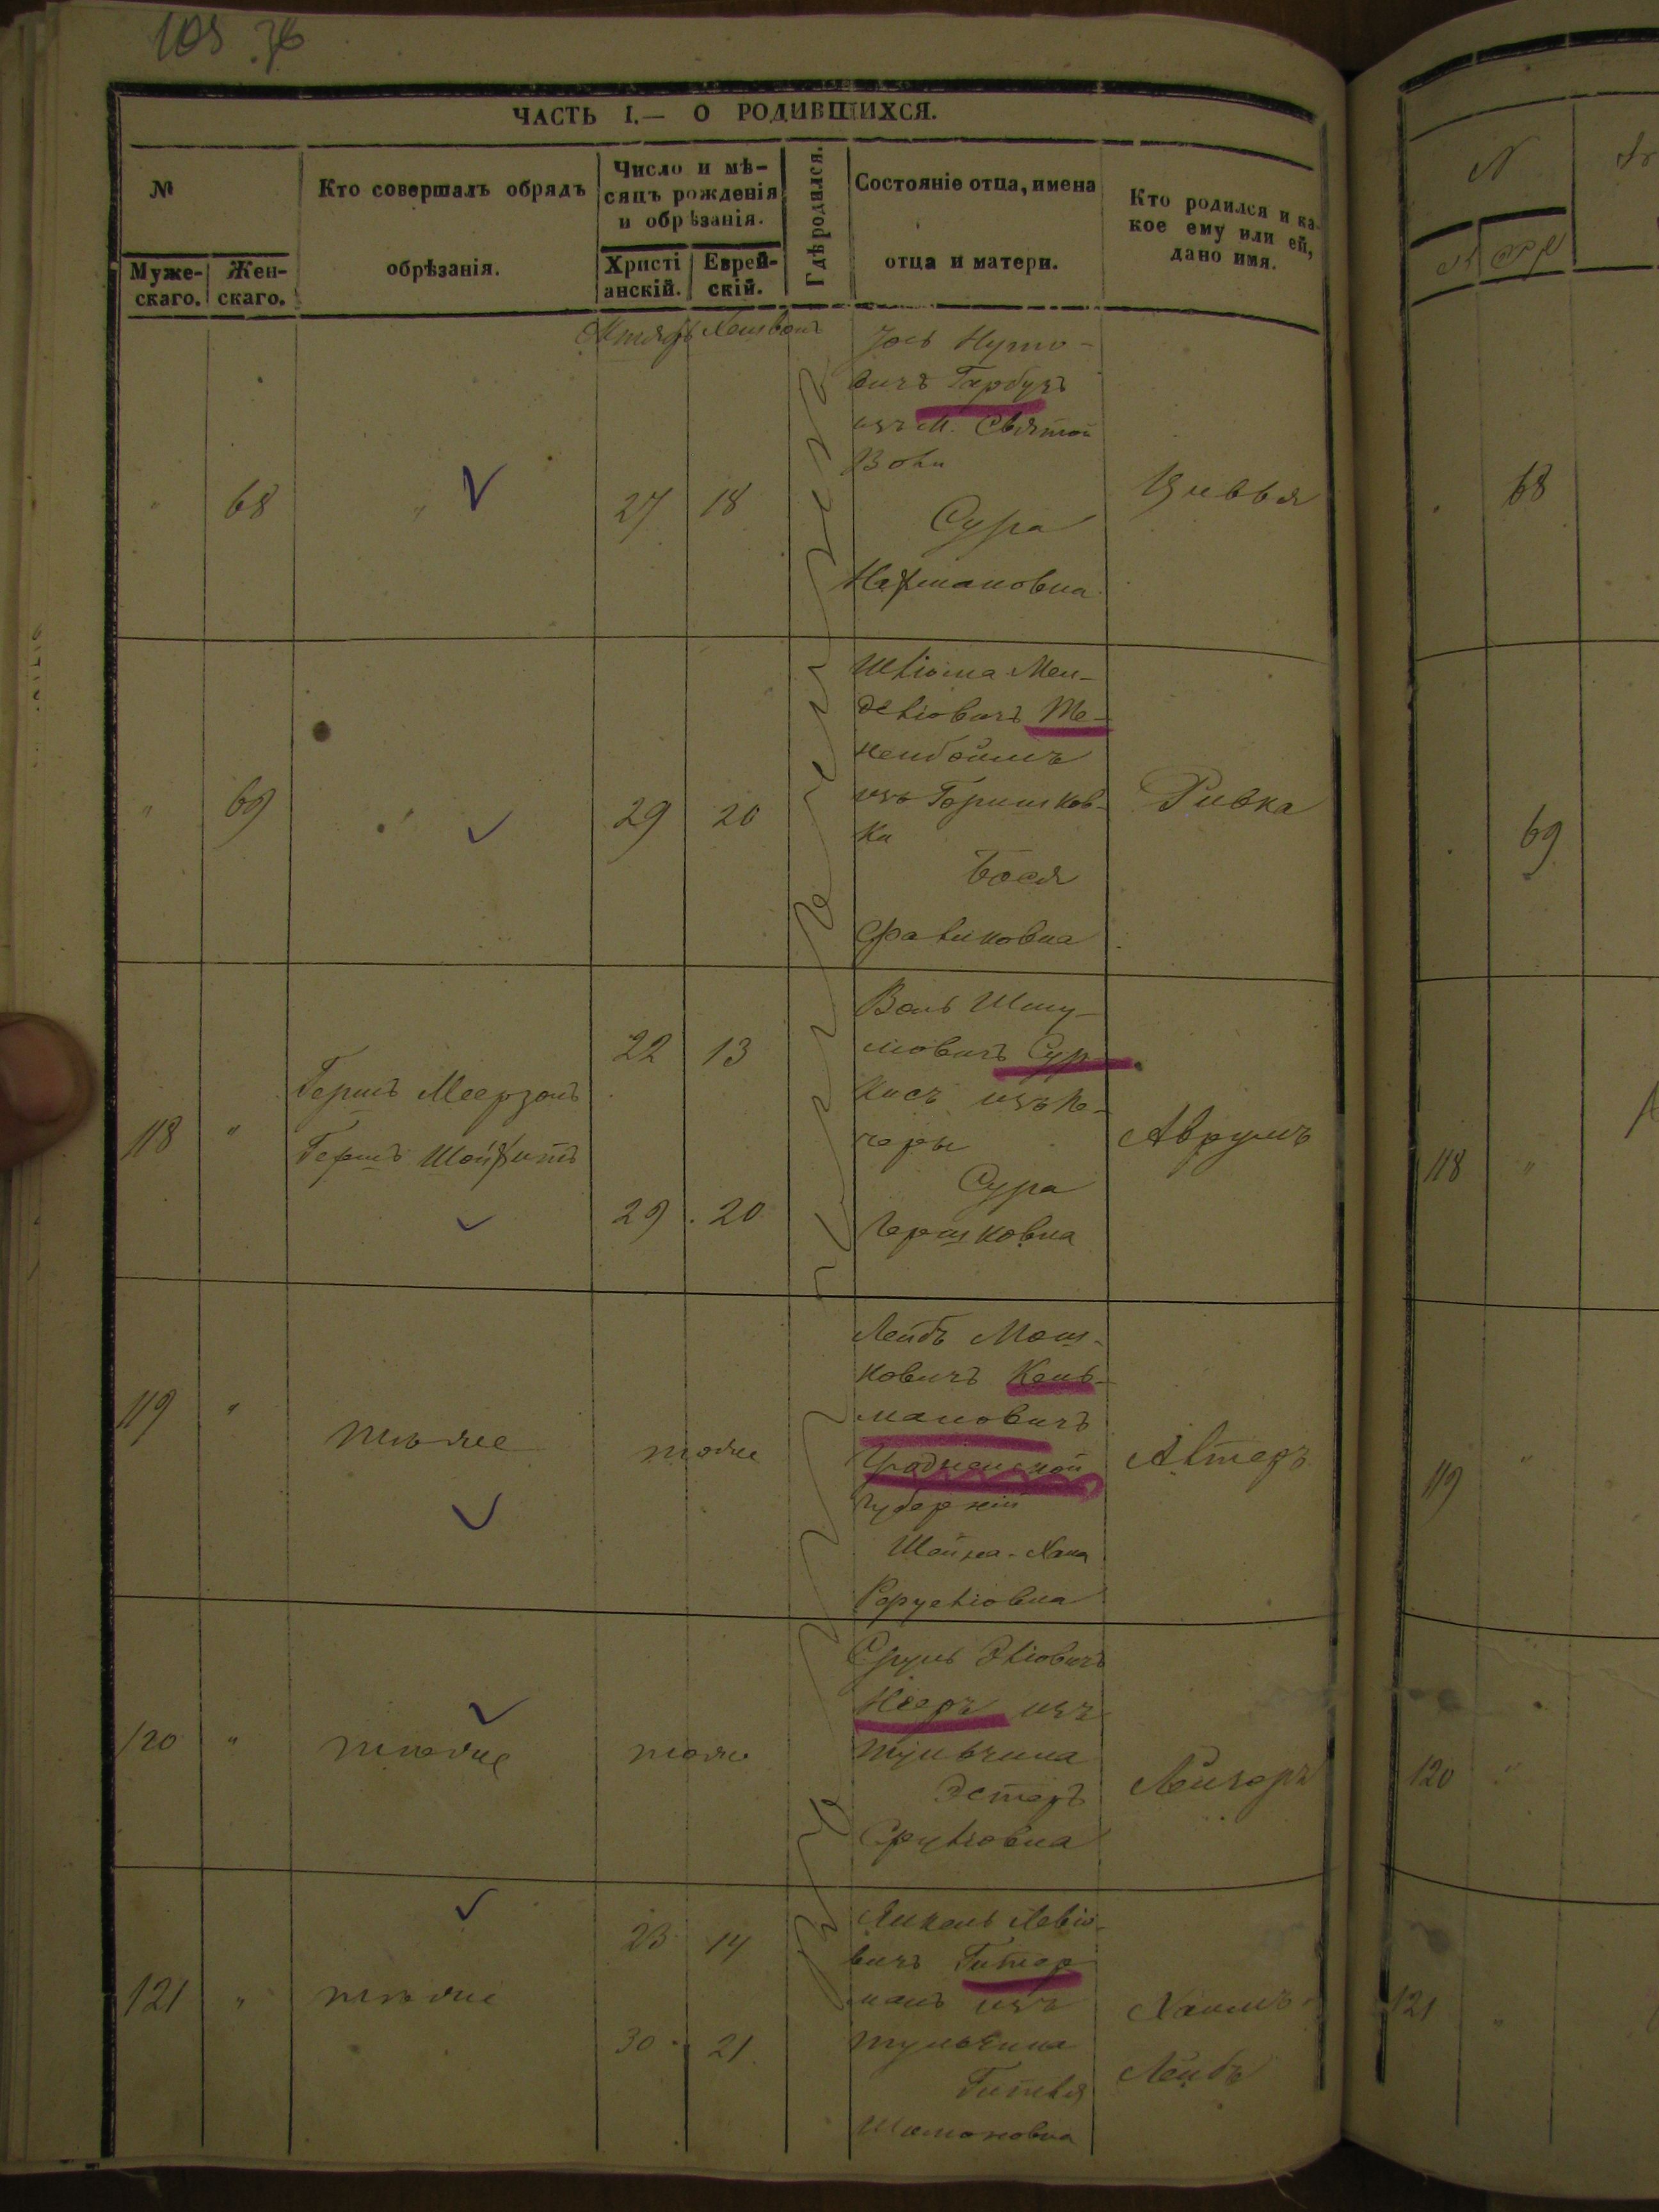 103 36
ЧАСТЬ I.— О РОДИВШИХСЯ.
№
Муже-
скаго.
Жен-
скаго.
Кто совершалъ обрядъ
обрѣзанія.
Число и мѣ-
сяцъ рожденія
и обрѣзанія.
Христі
анскій.
Еврей-
скій.
Гдѣ родился.
Состояніе отца, имена
отца и матери.
Кто родился и ка-
кое ему или ей,
дано имя.
Октябрь Хешвонъ
" 68 " 27 18
Іось Нутo-
вичъ Гарбузъ
изъ м. Святой
Воли
Сура
Нахмановна
Цивья
" 69 " 29 20
Шліома Мен-
деліовичъ Те-
ненбоймъ
изъ Горишков-
ки
Бося
Фаликовна
Ривка
118 "
Гершъ Меерзонъ
Гершъ Шойхитъ
22 13
29 20
Воль Шму-
ловичъ Сур-
кисъ изъ Пе-
черы
Сура
Гершковна
Аврумъ
119 " тѣже тоже
Лейбъ Мош-
ковичъ Каль-
мановичъ
Гродненской
губерніи
Шейна-Хана
Алтеръ
120 " тѣже тоже
Сруль Эліовичъ
изъ
Тульчина
Эстеръ
Сруліовна
Лейзеръ
121 " тѣже
23 14
30 21
Лейбіо-
вичъ Гитер
манъ изъ
Тульчина
Гитля
Шимоновна
Хаимъ-
Лейбъ
68
69
118 "
119 "
120 "
121 "